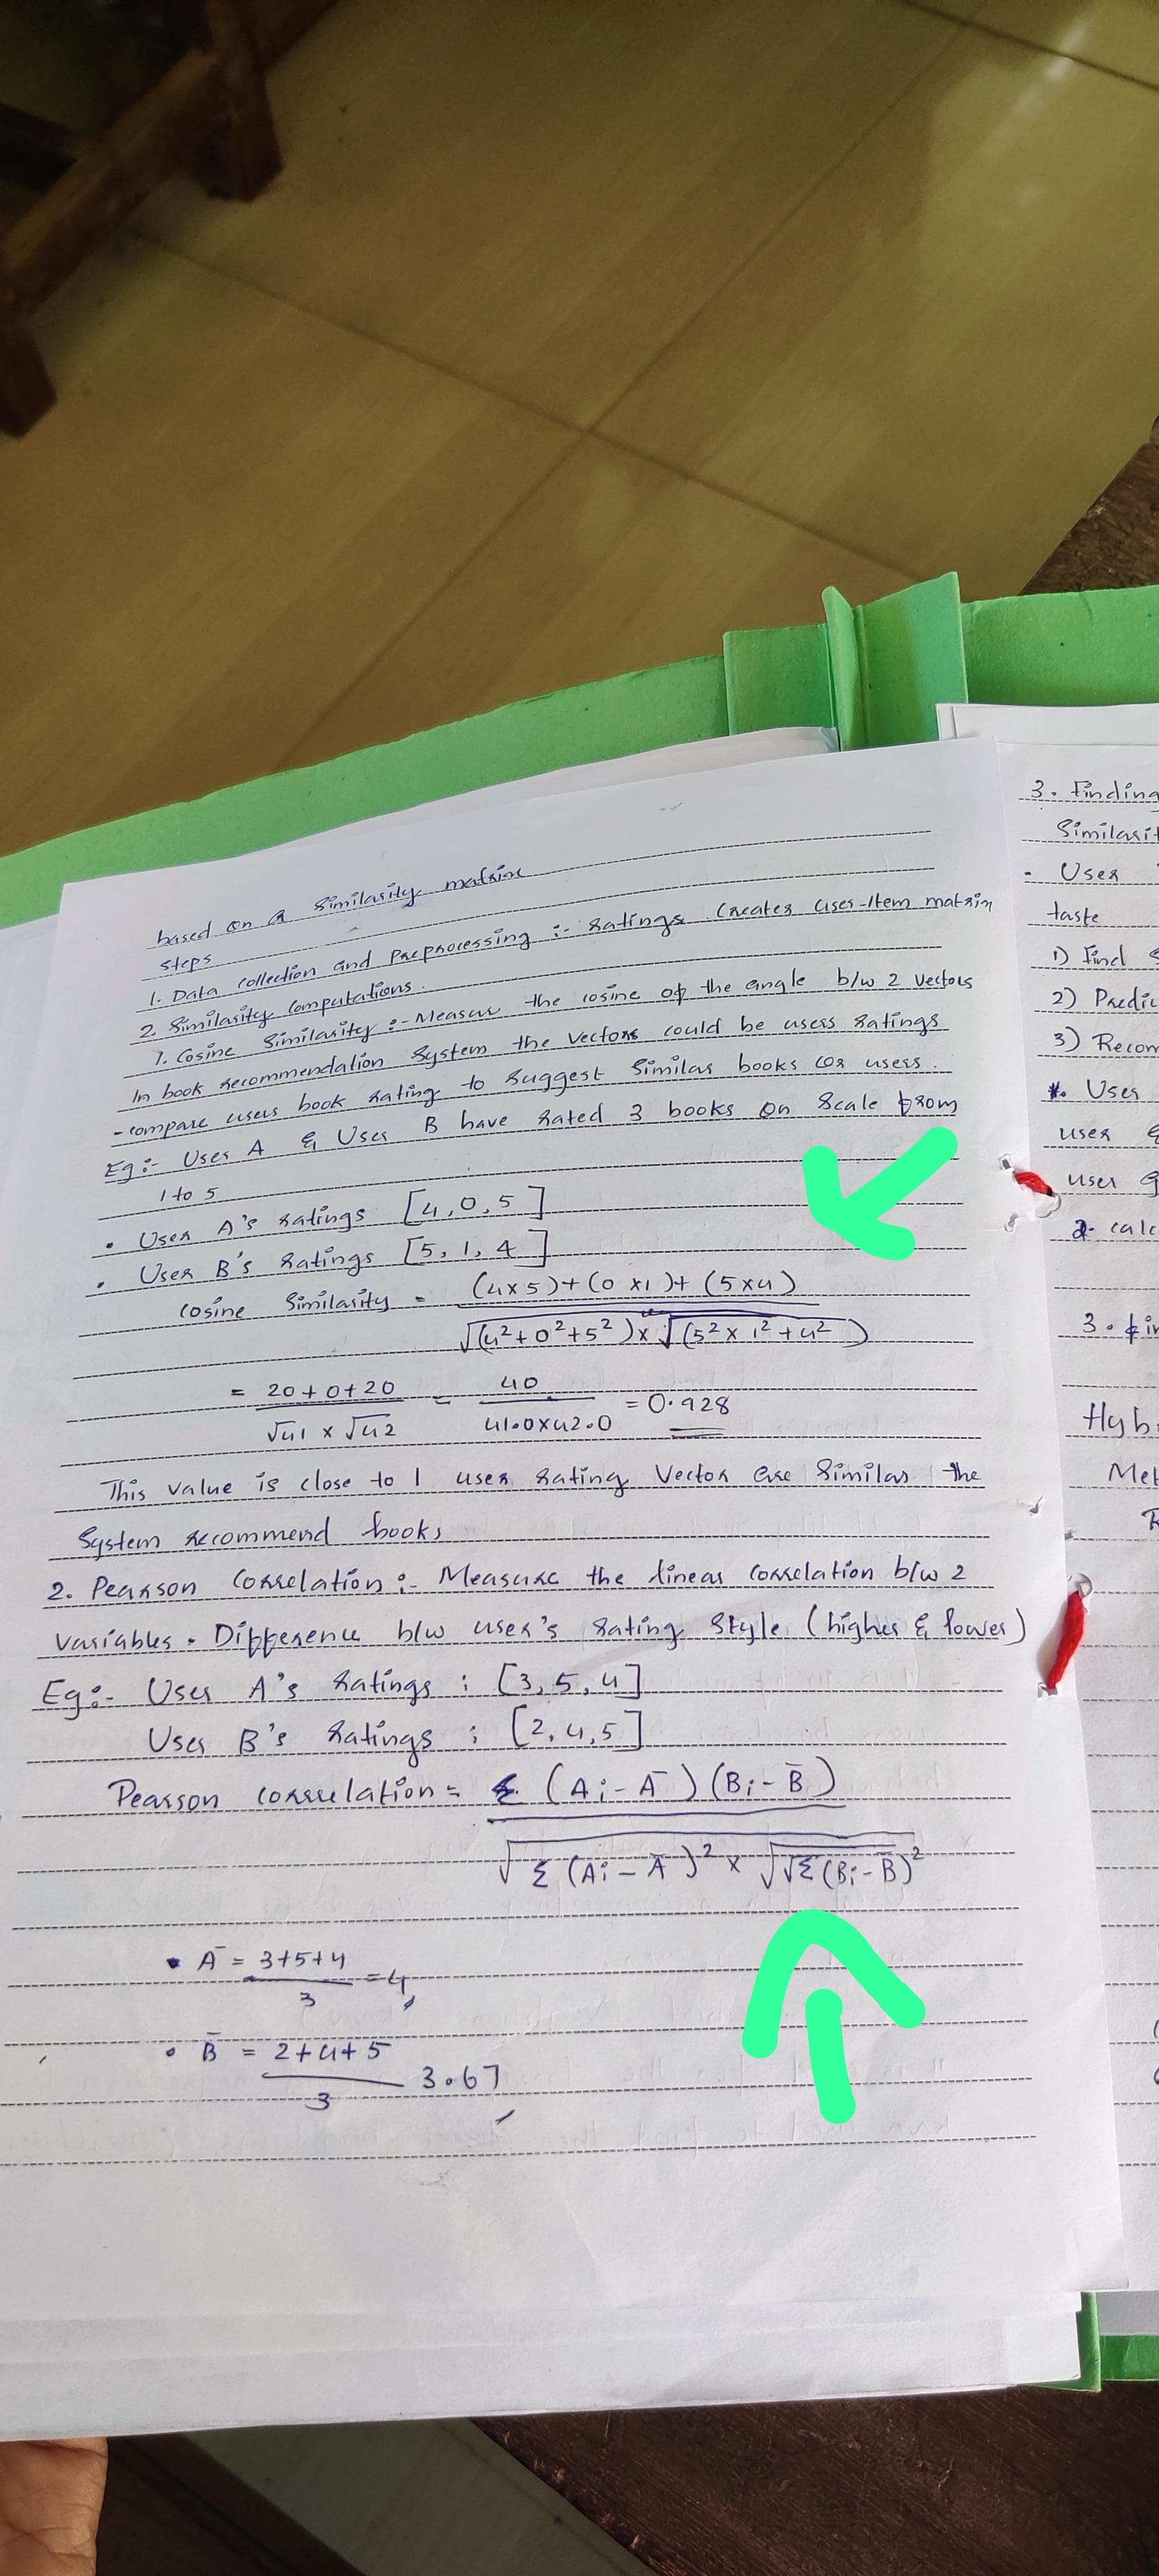 based on a similarity matrix
steps
1. Data collection and Preprocessing :- ratings. Creates user-Item matrix
2. Similarity computations.
1. Cosine Similarity :- Measure the cosine of the angle b/w 2 vectors
In book recommendation system the vectors could be users ratings
- compare users book rating to suggest similar books or users.
Eg:- User A & User B have rated 3 books on scale from
1 to 5
• User A's ratings [4, 0, 5]
• User B's ratings [5, 1, 4]
Cosine Similarity = (4x5)+(0x1)+(5x4) / √(4²+0²+5²)x√(5²x1²+4²)
= 20+0+20 / √41 x √42 = 40 / 41.0x42.0 = 0.928
This value is close to 1 user rating vector are similar the
system recommend books
2. Pearson Correlation :- Measure the linear correlation b/w 2
variables. Difference b/w user's rating style (higher & lower)
Eg:- User A's ratings : [3, 5, 4]
User B's ratings : [2, 4, 5]
Pearson correlation = Σ (Ai - A̅)(Bi - B̅) / √Σ(Ai - A̅)² x √√Σ(Bi - B̅)²
• A̅ = 3+5+4 / 3 = 4
• B̅ = 2+4+5 / 3 3.67
3. Finding
Similarit
- User
taste
1) Find
2) Predic
3) Recom
*. User
user &
user
2. calc
3. fin
Hyb
Met
R